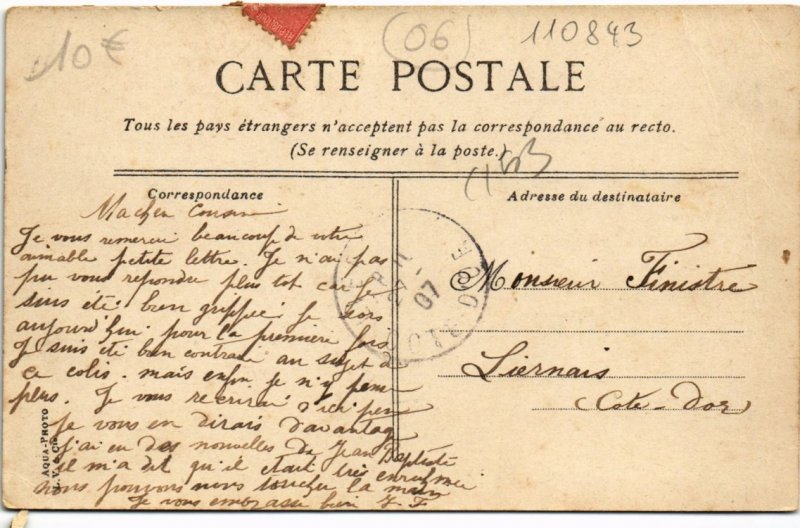 10€
(06)
110843
CARTE POSTALE
Tous les pays étrangers n'acceptent pas la correspondance au recto.
(Se renseigner à la poste.)
Correspondance
Ma chere Cousine
Je vous remercie beaucoup de votre
aimable petite lettre. Je n'ai pas
pu vous repondre plus tot car je
suis eté bien grippée, je sors
aujourd'hui pour la première fois
Je suis eté bien contrarié au sujet de
ce colis. mais enfin je n'y pense
plus. Je vous recrirai d'ici peu
je vous en dirais d'avantage
j'ai eu des nouvelles de Jean Baptiste
il m'a dit qu'il etait très enrhumé
nous pouvons nous toucher la main
Je vous embrasse bien J F
AQUA-PHOTO
Adresse du destinataire
Monsieur Finistre
Liernais
(Cote-Dor)
07
COTE D'OR